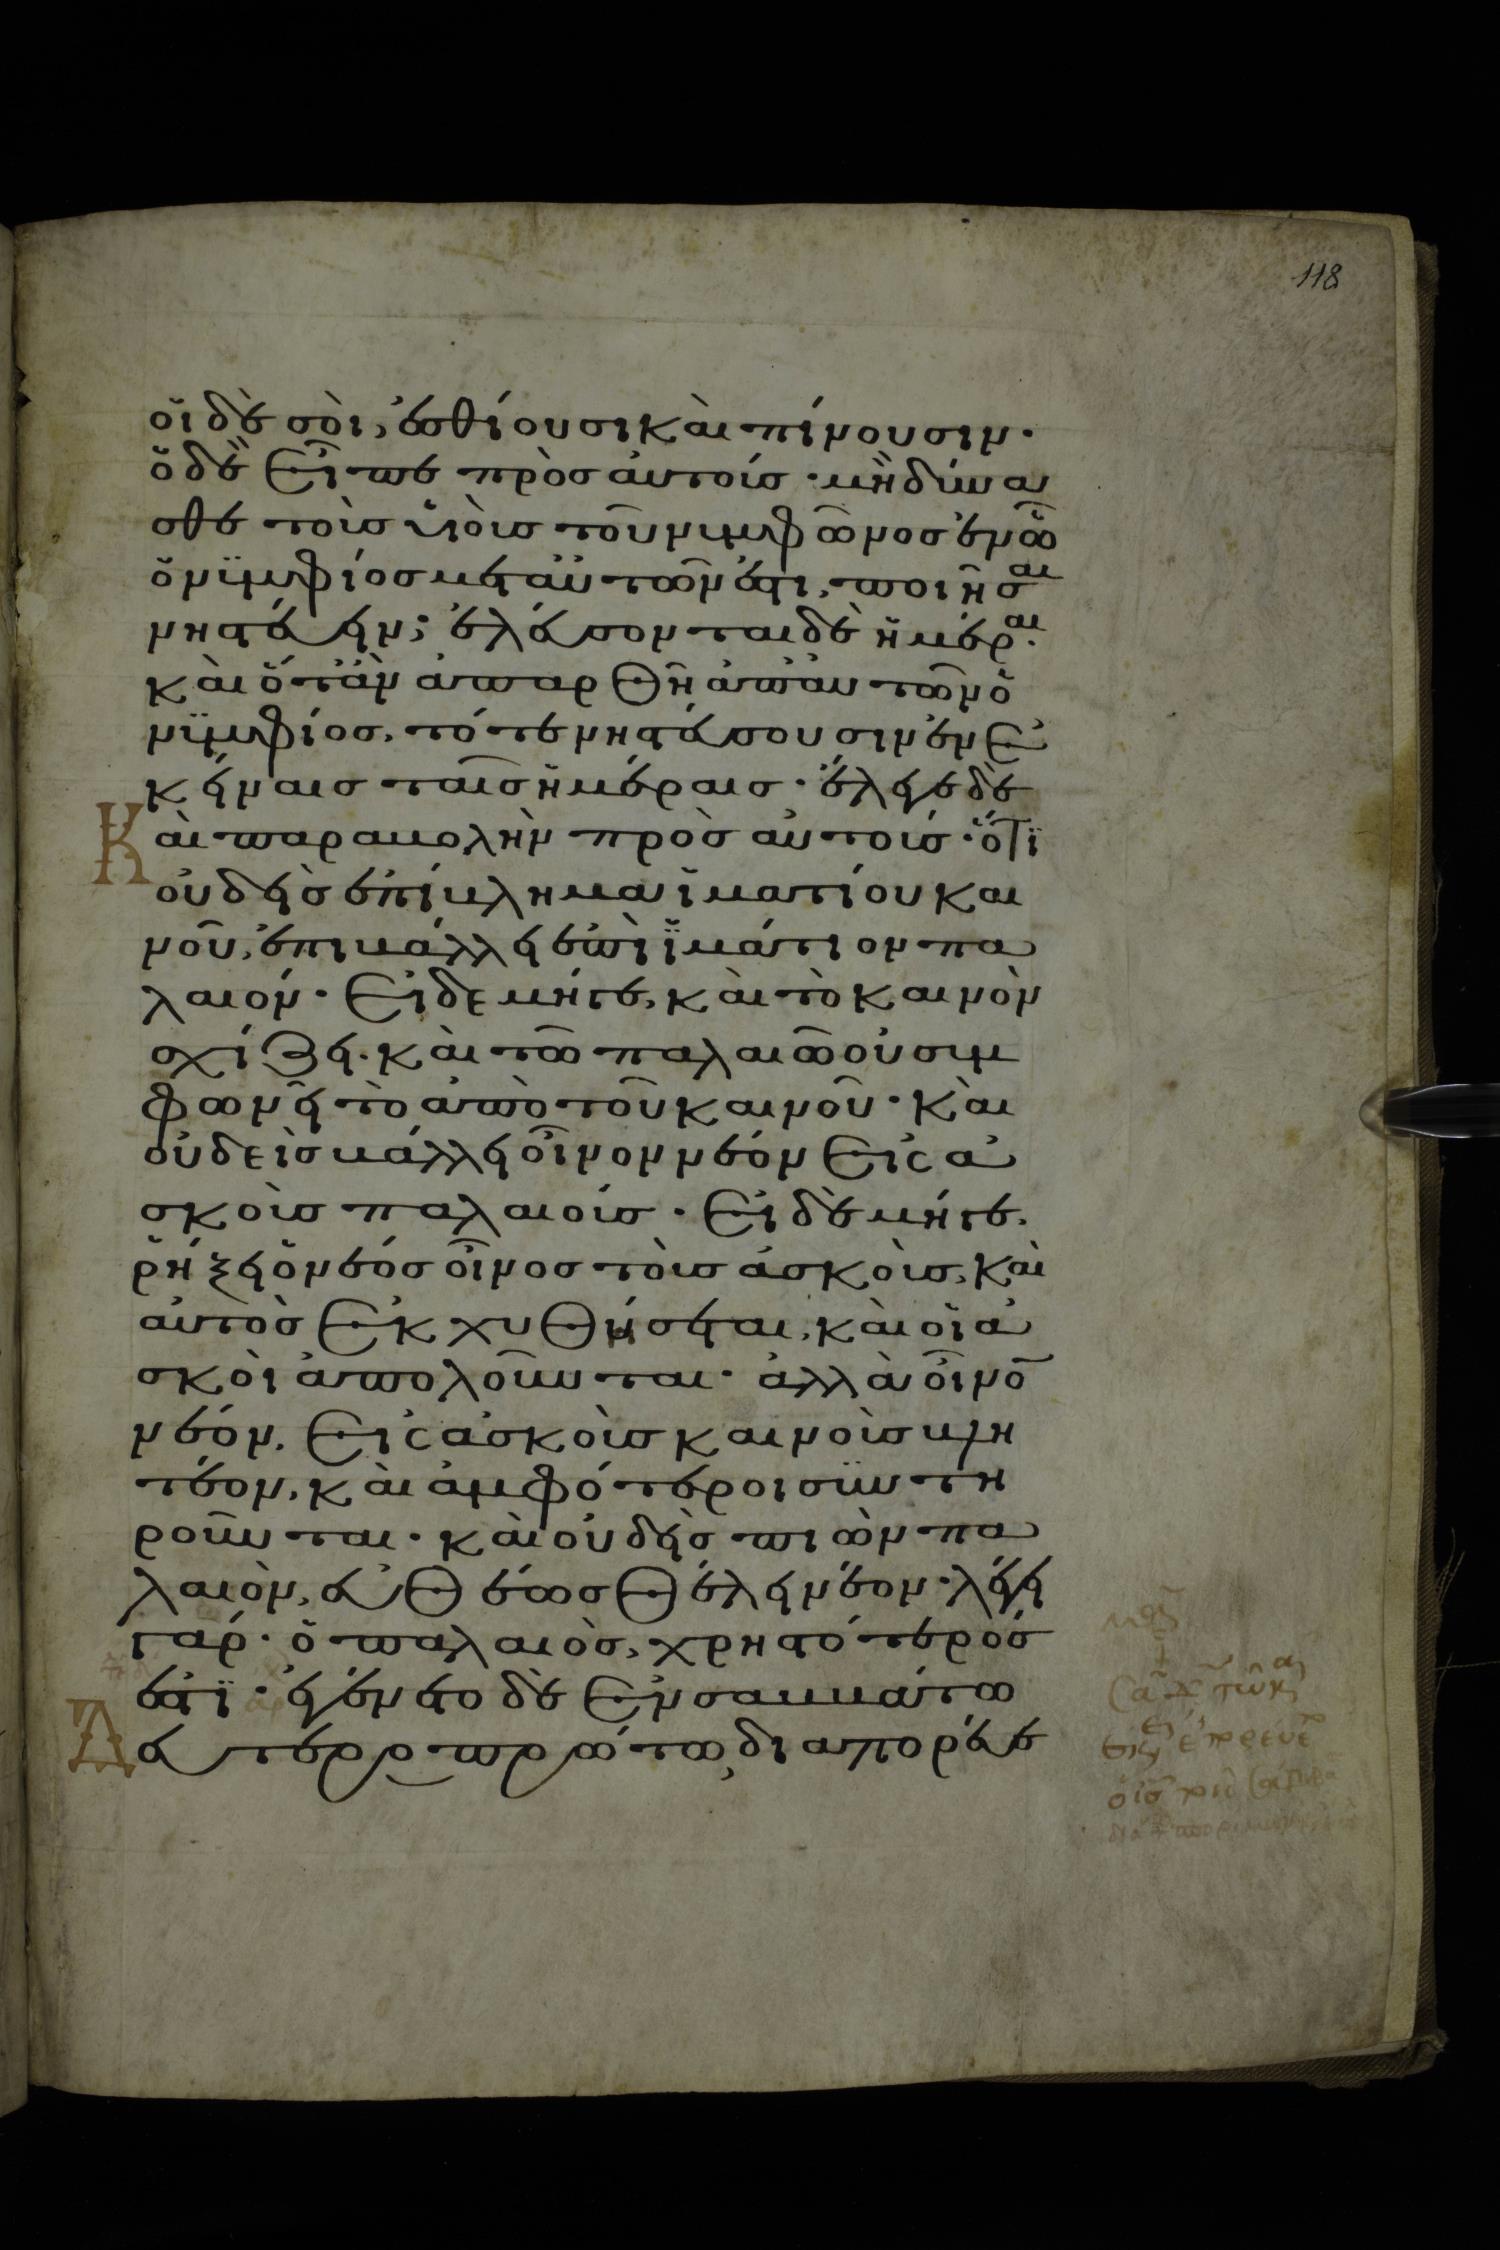 118
οἵ δὲ σοὶ, ἐσθίουσι καὶ πίνουσιν·
ὅ δὲ εἶπε πρὸς αὐτούς· μὴ δύνα
σθε τοὺς ὑιοὺς τοῦ νυμφῶνος ἐν ᾧ
ὅ νϋμφίος μετ' αὐτῶν ἐστι, ποιῆσαι
νηστεύειν; ἐλεύσονται δὲ ἡμέραι·
καὶ ὅταν ἀπαρθῆ ἀπ' αὐτῶν ὁ
νϋμφίος, τότε νηστεύσουσιν ἐν ἐ
κείναις ταῖς ἡμέραις· ἔλεγε δὲ
Καὶ παραβολὴν πρὸς αὐτούς· ὅτϊ
οὐδεὶς ἐπίβλημα ἱματίου και
νοῦ, ἐπιβάλλει ἐπὶ ἱμάτιον πα
λαιόν· εἰδεμήγε, καὶ τὸ καινὸν
σχίζει· καὶ τῶ παλαιῶ οὐ συμ
φωνεῖ τὸ ἀπὸ τοῦ καινοῦ· καὶ
οὐδεὶς βάλλει οἶνον νέον εἰς ἀ
σκοὺς παλαιούς· εἰ δὲ μήγε,
ῥήξει ὁ νέος οἶνος τοὺς ἀσκοὺς, καὶ
αὐτὸς ἐκχυθήσεται, καὶ οἱ ἀ
σκοὶ ἀπολοῦνται· ἀλλὰ οἶνο̅
νέον, εἰς ἀσκοὺς καινοὺς βλη
τέον, καὶ ἀμφότεροι σϋντη
ροῦνται· καὶ οὐδεὶς πιὼν πα
λαιὸν, εὐθέως θέλει νέον· λέγει
γάρ· ὁ παλαιὸς, χρηστότερός
ἐστϊ· ἐγένετο δὲ ἐν σαββάτω
Δευτεροπρώτω, διαπορεύε